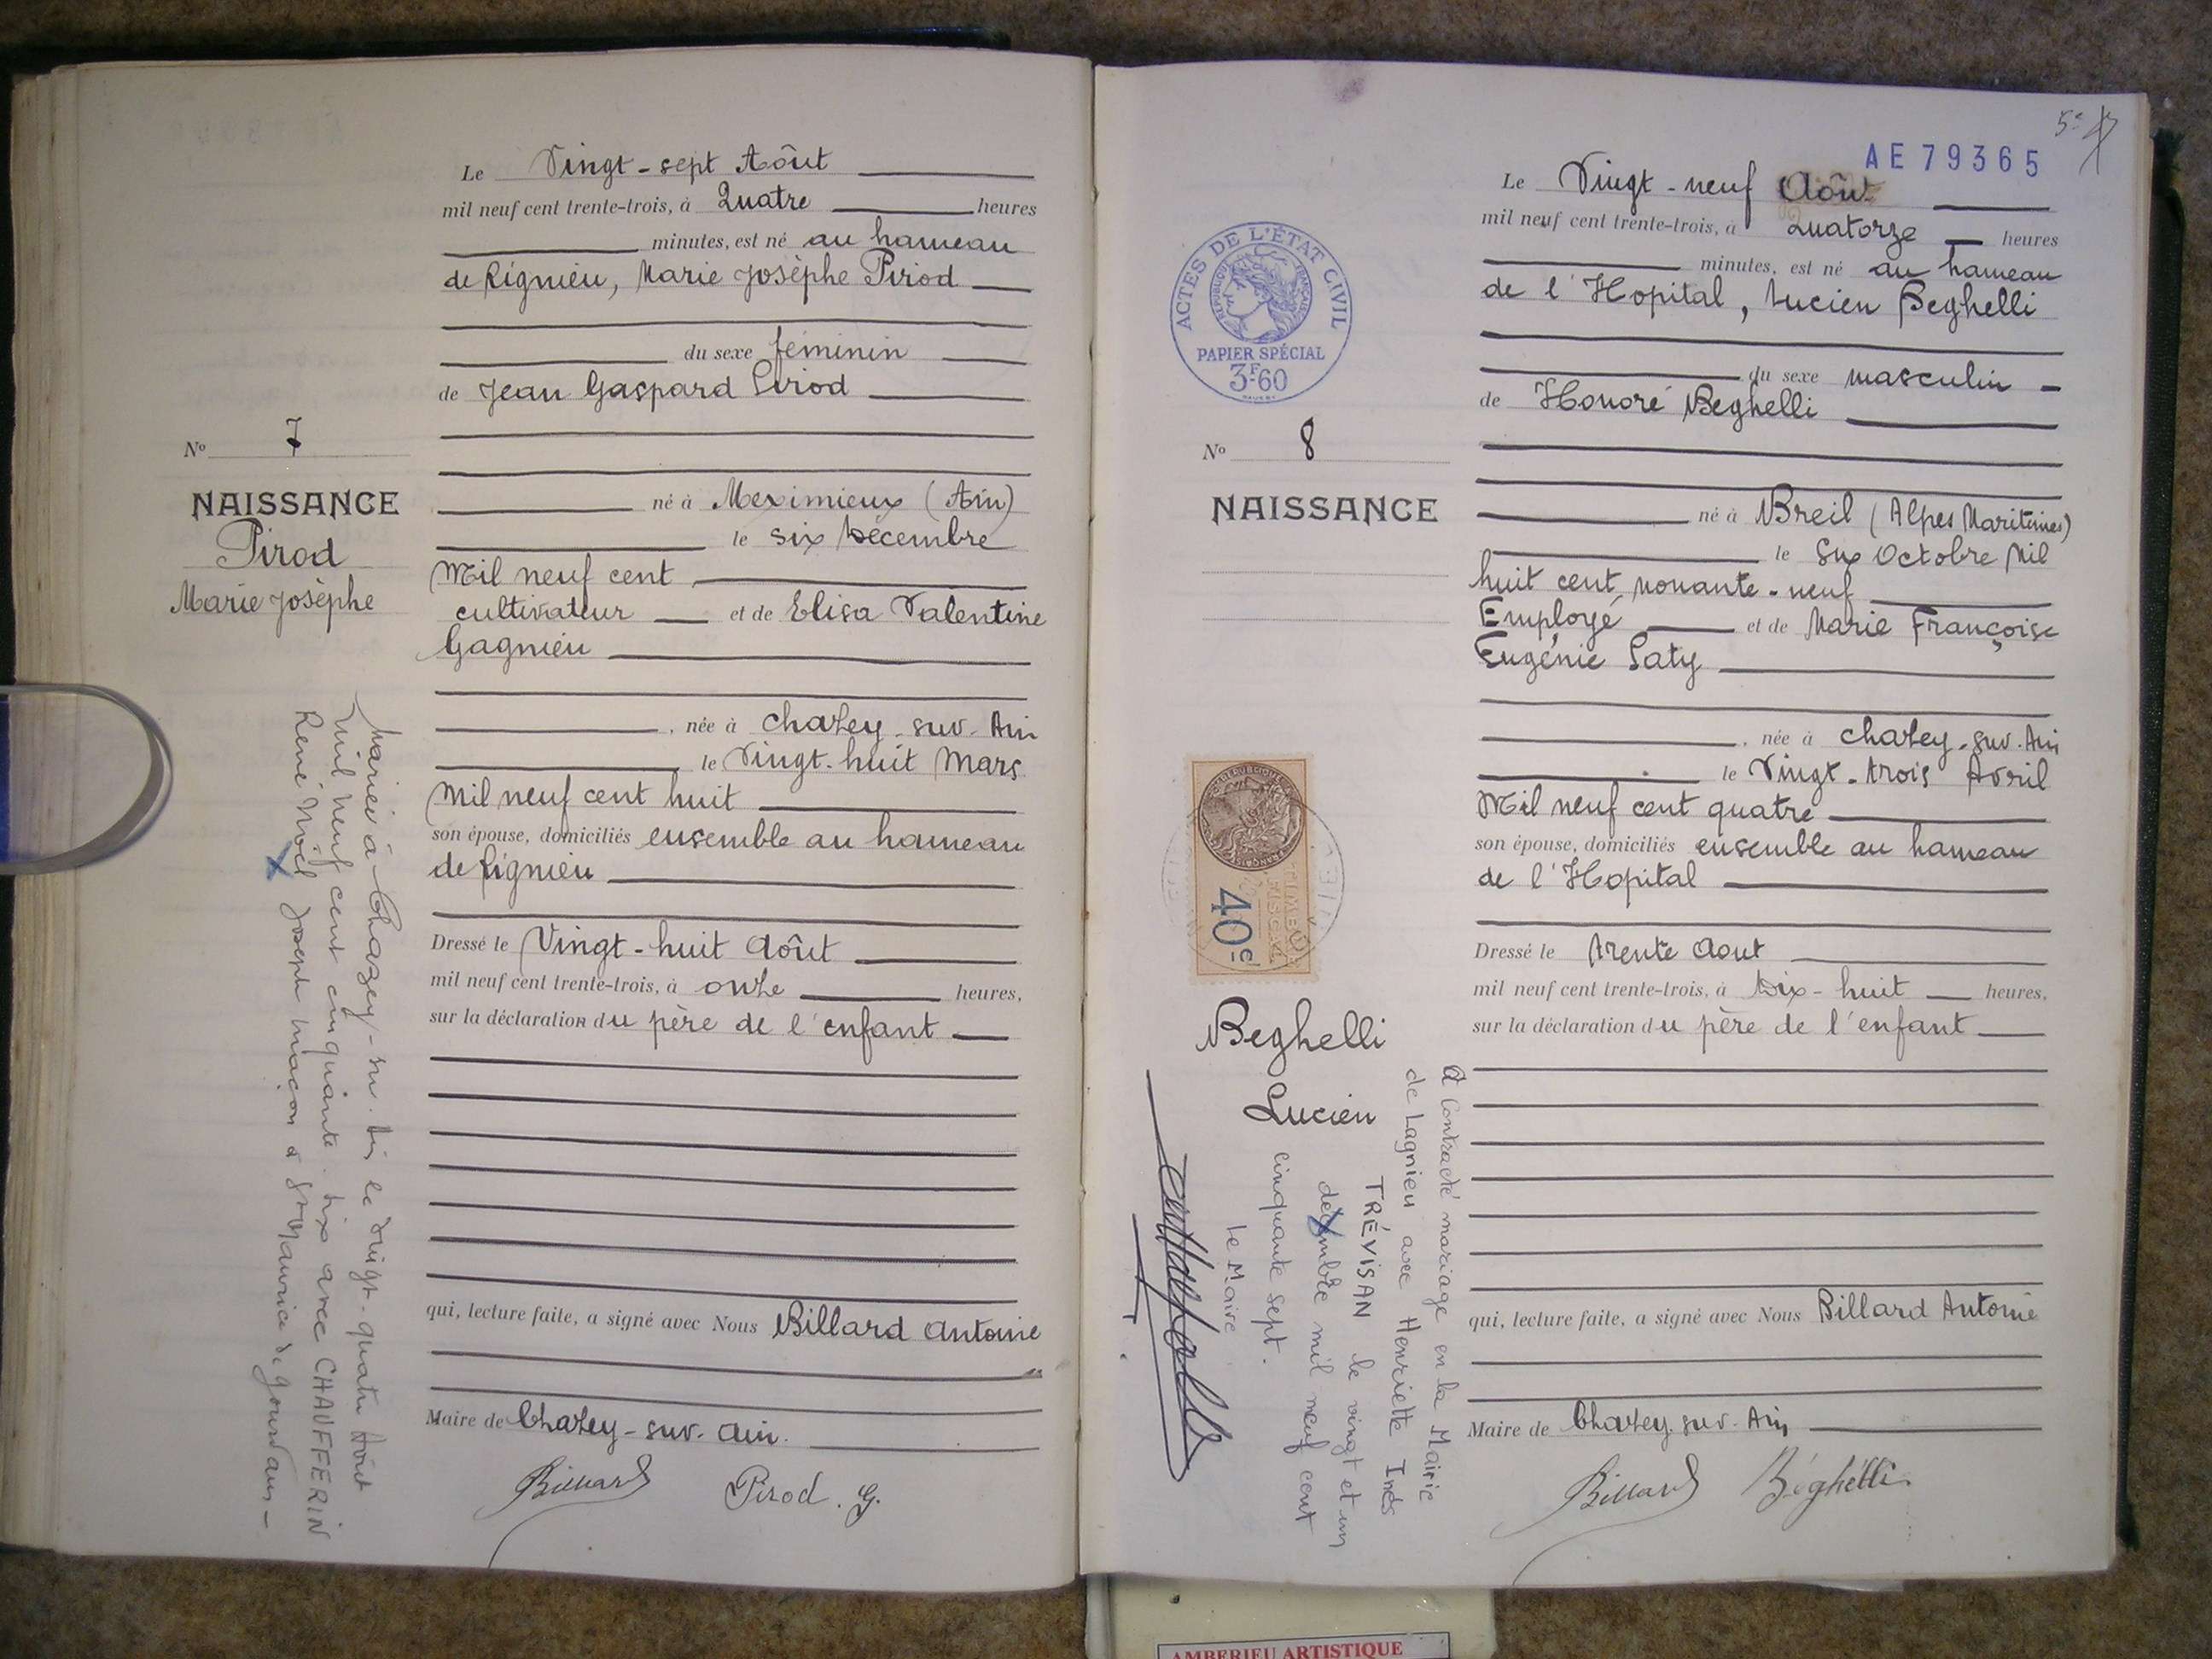 Le Vingt-sept Aôut
mil neuf cent trente-trois, à Quatre heures
minutes, est né au hameau
de Rignieu, Marie Josèphe Pirod
du sexe féminin
de Jean Gaspard Pirod
No 7
NAISSANCE
Pirod
Marie Josèphe
né à Meximieux (Ain)
le six Décembre
Mil neuf cent
cultivateur et de Elisa Valentine
Gagnieu
, née à Chazey-sur-Ain
le Vingt-huit Mars
Mil neuf cent huit
son épouse, domiciliés ensemble au hameau
de Rignieu
Dressé le Vingt-huit Aôut
mil neuf cent trente-trois, à onze heures,
sur la déclaration du père de l'enfant
qui, lecture faite, a signé avec Nous Billard Antoine
Maire de Chazey-sur-Ain.
Billard Pirod. G.
Mariée à Chazey-sur-Ain le vingt-quatre Aôut
mil neuf cent cinquante-six avec CHAUFFERIN
René Noël Joseph maçon à St Maurice de Gourdans-
5e
AE79365
Le Vingt-neuf Aôut
mil neuf cent trente-trois, à Quatorze heures
minutes, est né au hameau
de l'Hopital, Lucien Beghelli
du sexe masculin
de Honoré Beghelli
ACTES DE L'ÉTAT CIVIL
RÉPUBLIQUE FRANÇAISE
PAPIER SPÉCIAL
3F.60
No 8
NAISSANCE
né à Breil (Alpes Maritimes)
le Six Octobre Mil
huit cent nonante-neuf
Employé et de Marie Françoise
Eugénie Paty
, née à Chazey-sur-Ain
le Vingt-trois Avril
Mil neuf cent quatre
son épouse, domiciliés ensemble au hameau
de l'Hopital
Dressé le trente Aout
mil neuf cent trente-trois, à Dix-huit heures,
sur la déclaration du père de l'enfant
qui, lecture faite, a signé avec Nous Billard Antoine
Maire de Chazey-sur-Ain
Billard Béghélli
TIMBRE
FISCAL
40c
Beghelli
Lucien
A Contracté mariage en la Mairie
de Lagnieu avec Henriette Inès
TRÉVISAN le vingt et un
décembre mil neuf cent
cinquante sept.
le Maire
AMBERIEU ARTISTIQUE